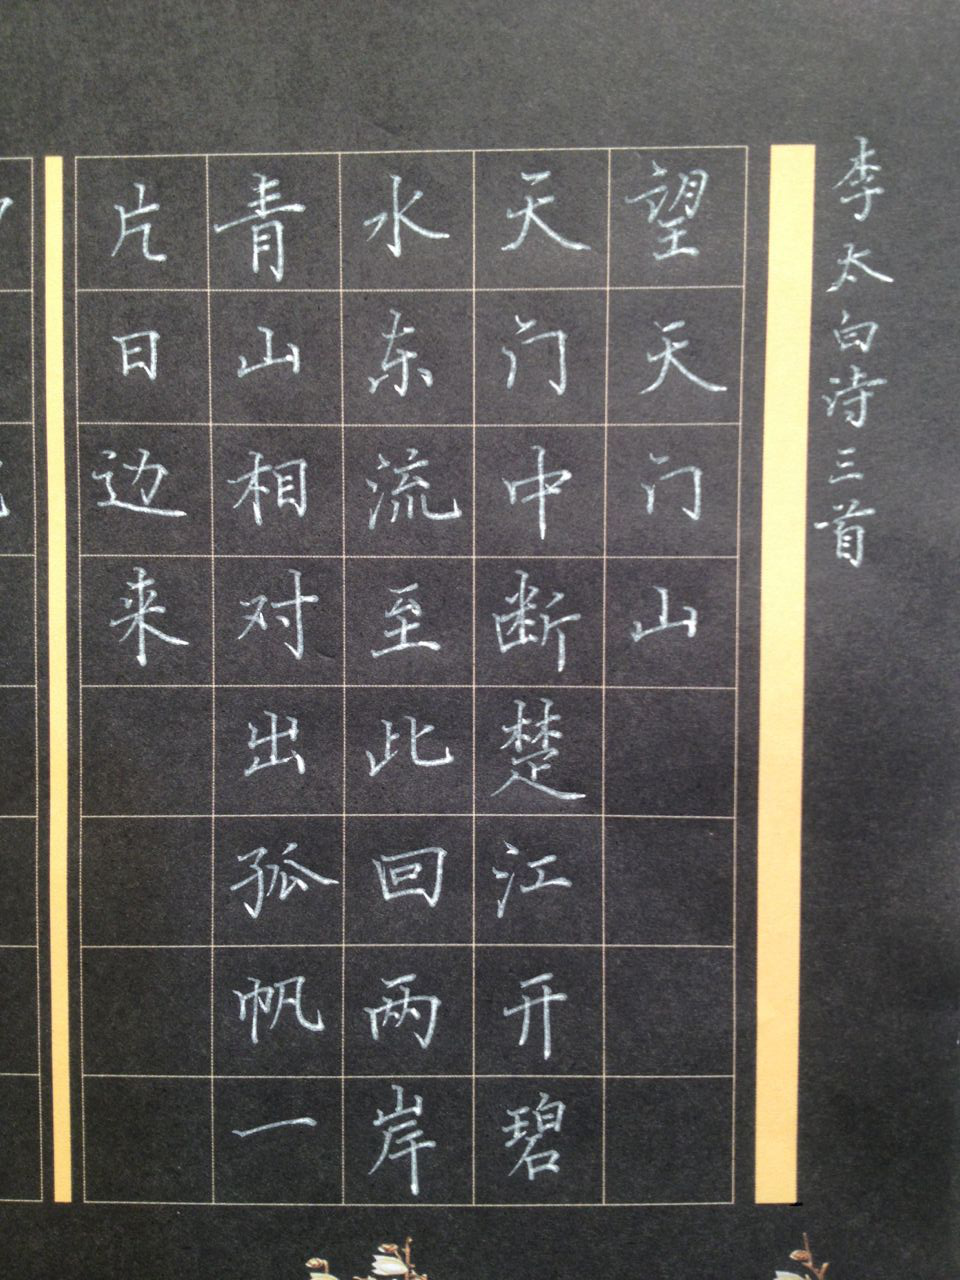 李太白诗三首
望天门山
天门中断楚江开碧
水东流至此回两岸
青山相对出孤帆一
片日边来